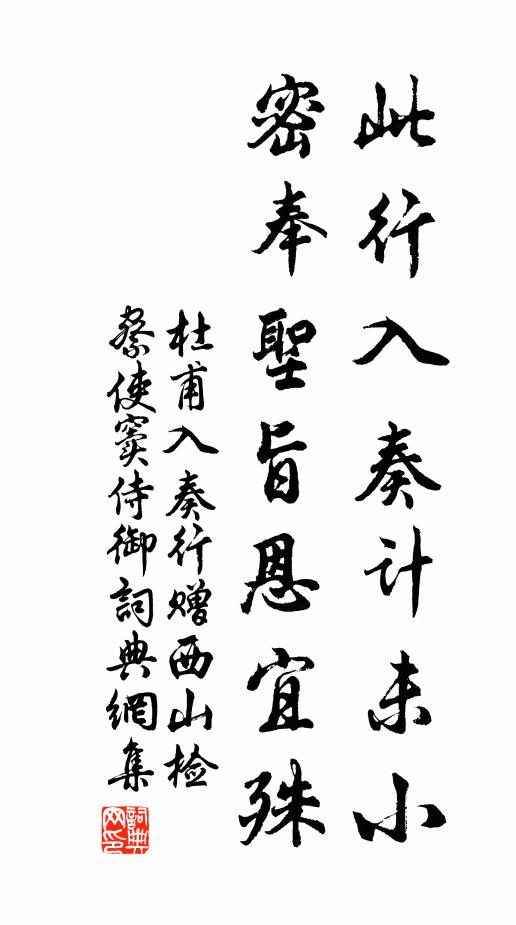 此行入奏計未小
密奉聖旨恩宜殊
杜甫入奏行赠西山检
察使窦侍御詞典網集
詞典網印